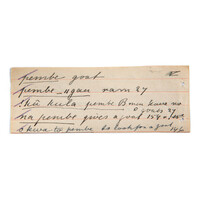 pembe goat
pembe - ngau ram 27
kula pembe B man have no
goats 27
na pembe gives a goat
to pembe to look for a goat